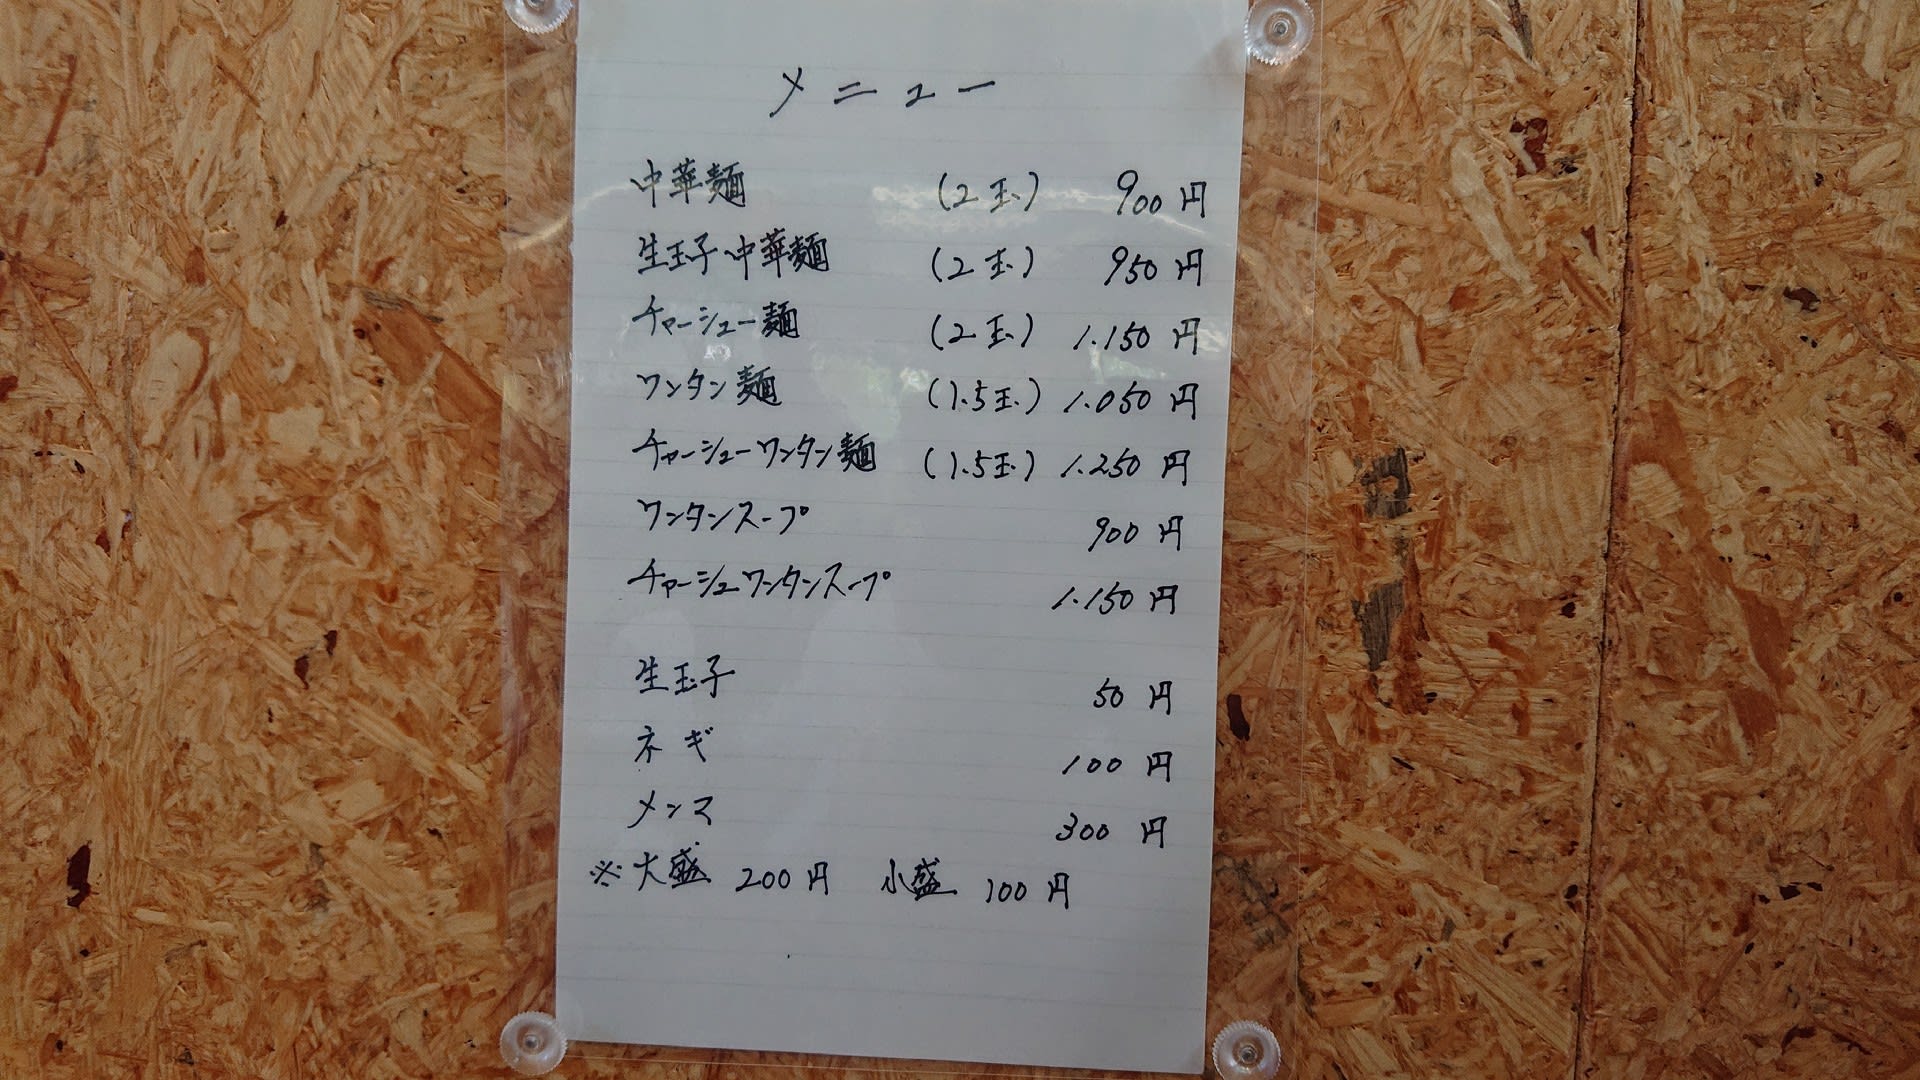 メニュー
中華麺 (2玉) 900円
生玉子中華麺 (2玉) 950円
チャーシュー麺 (2玉) 1.150円
ワンタン麺 (1.5玉) 1.050円
チャーシューワンタン麺 (1.5玉) 1.250円
ワンタンスープ 900円
チャーシュワンタンスープ 1.150円
生玉子 50円
ネギ 100円
メンマ 300円
※大盛 200円 小盛 100円